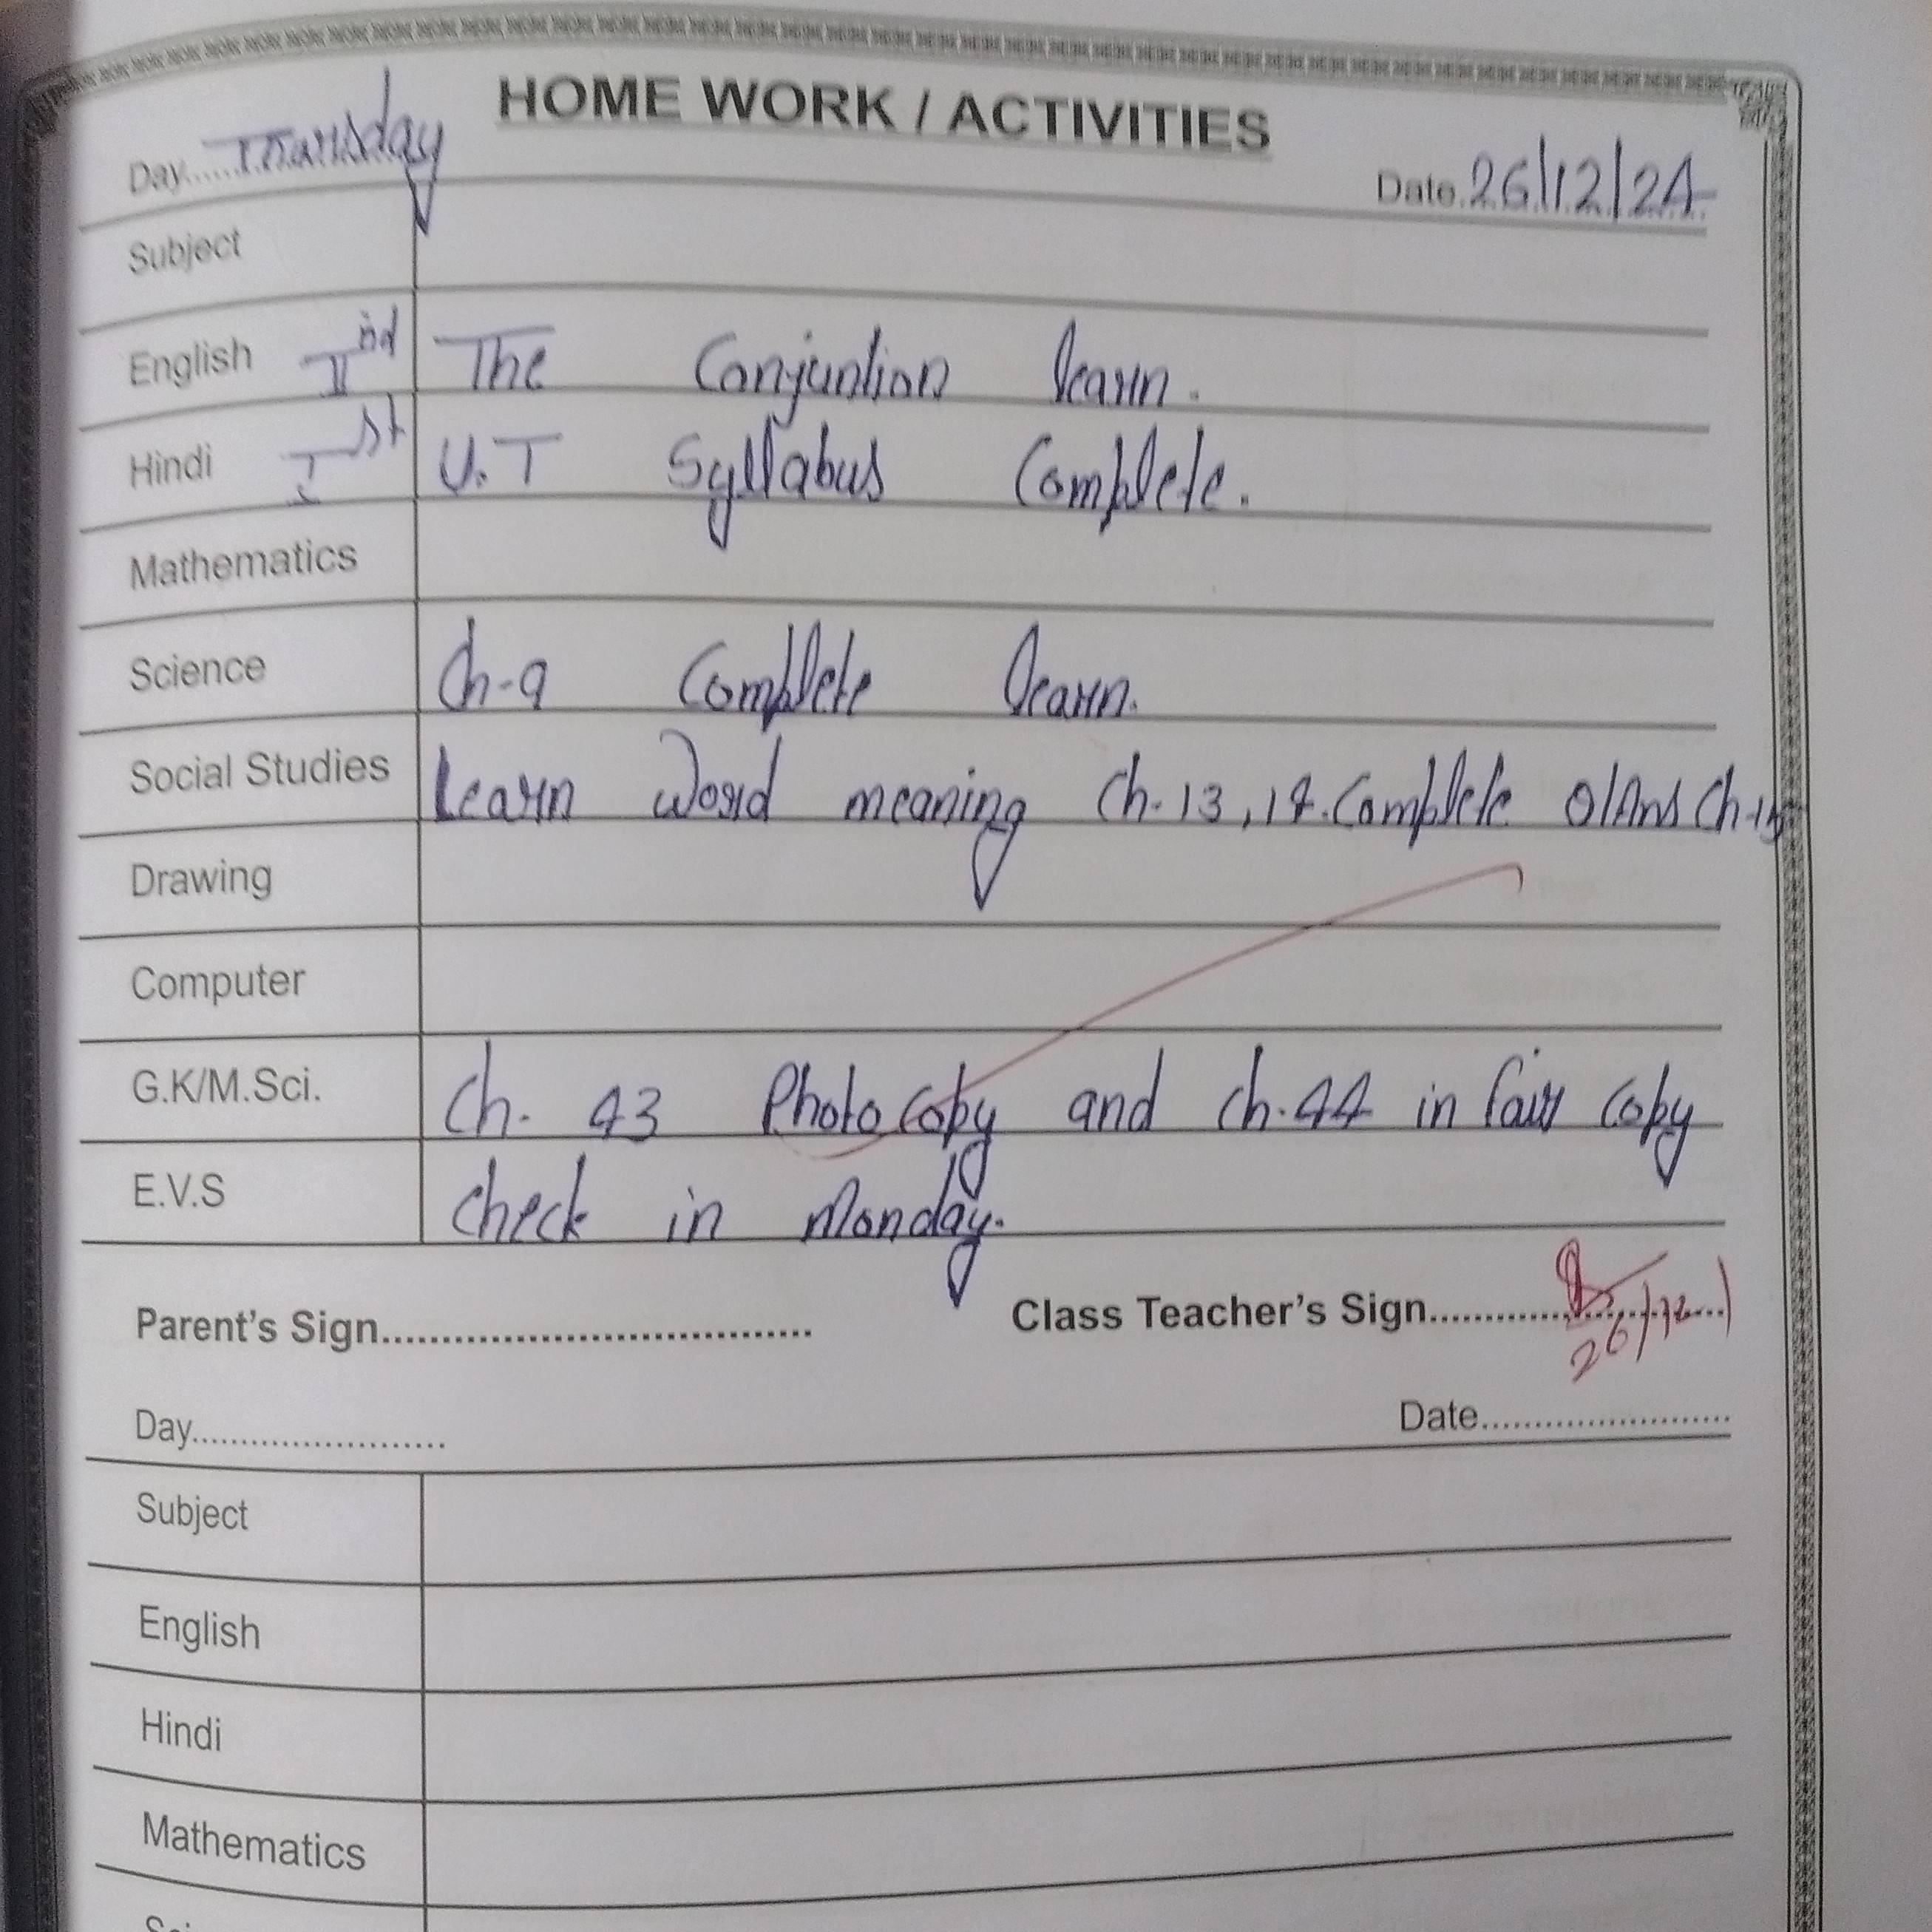 HOME WORK / ACTIVITIES
Day...... Thursday Date. 26/12/24
Subject
English IInd The Conjuntion learn.
Hindi Ist U.T Syllabus Complete.
Mathematics
Science Ch-9 Complete learn.
Social Studies Learn word meaning Ch-13, 14. Complete Ch-
Drawing
Computer
G.K/M.Sci. Ch. 43 Photo copy and ch.44 in fair copy
E.V.S check in Monday.
Parent's Sign.................................. Class Teacher's Sign........................
26/12
Day........................ Date........................
Subject
English
Hindi
Mathematics